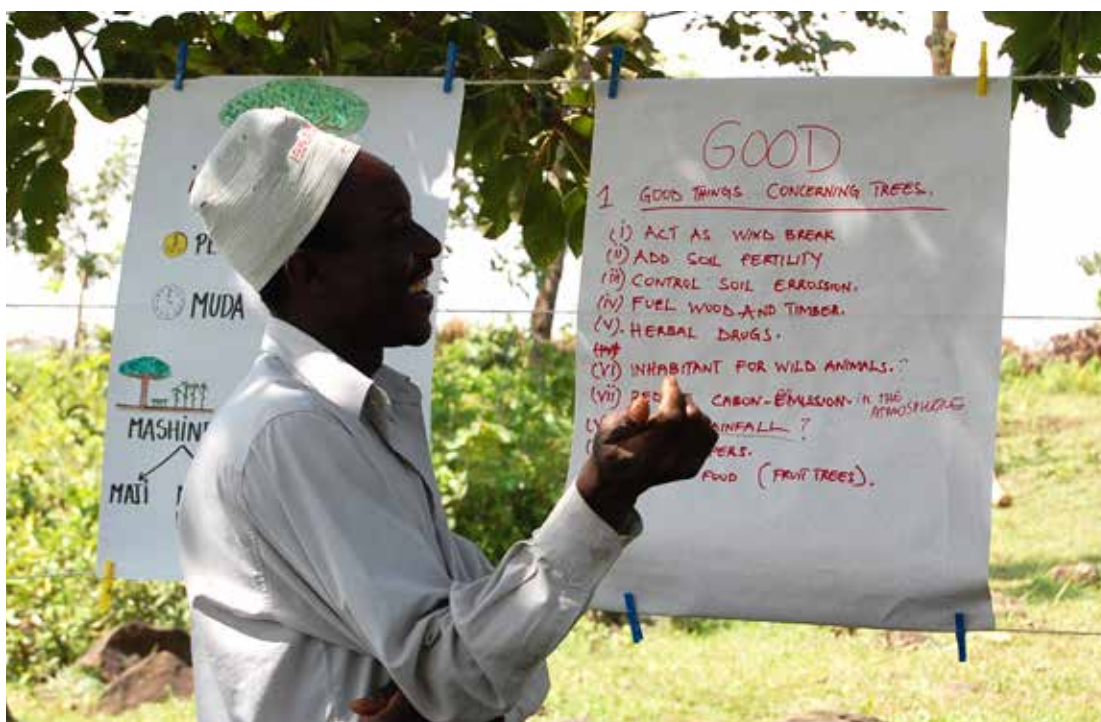 MUDA
MASHINE
MAJI
GOOD
1 GOOD THINGS CONCERNING TREES.
(i) ACT AS WIND BREAK
(ii) ADD SOIL FERTILITY
(iii) CONTROL SOIL ERROSSION.
(iv) FUEL WOOD AND TIMBER.
(v). HERBAL DRUGS.
(vi) INHABITANT FOR WILD ANIMALS.
(vii) CABON-EMISSION. IN THE
ATMOSPHERE
RAINFALL ?
FOOD (FRUIT TREES).